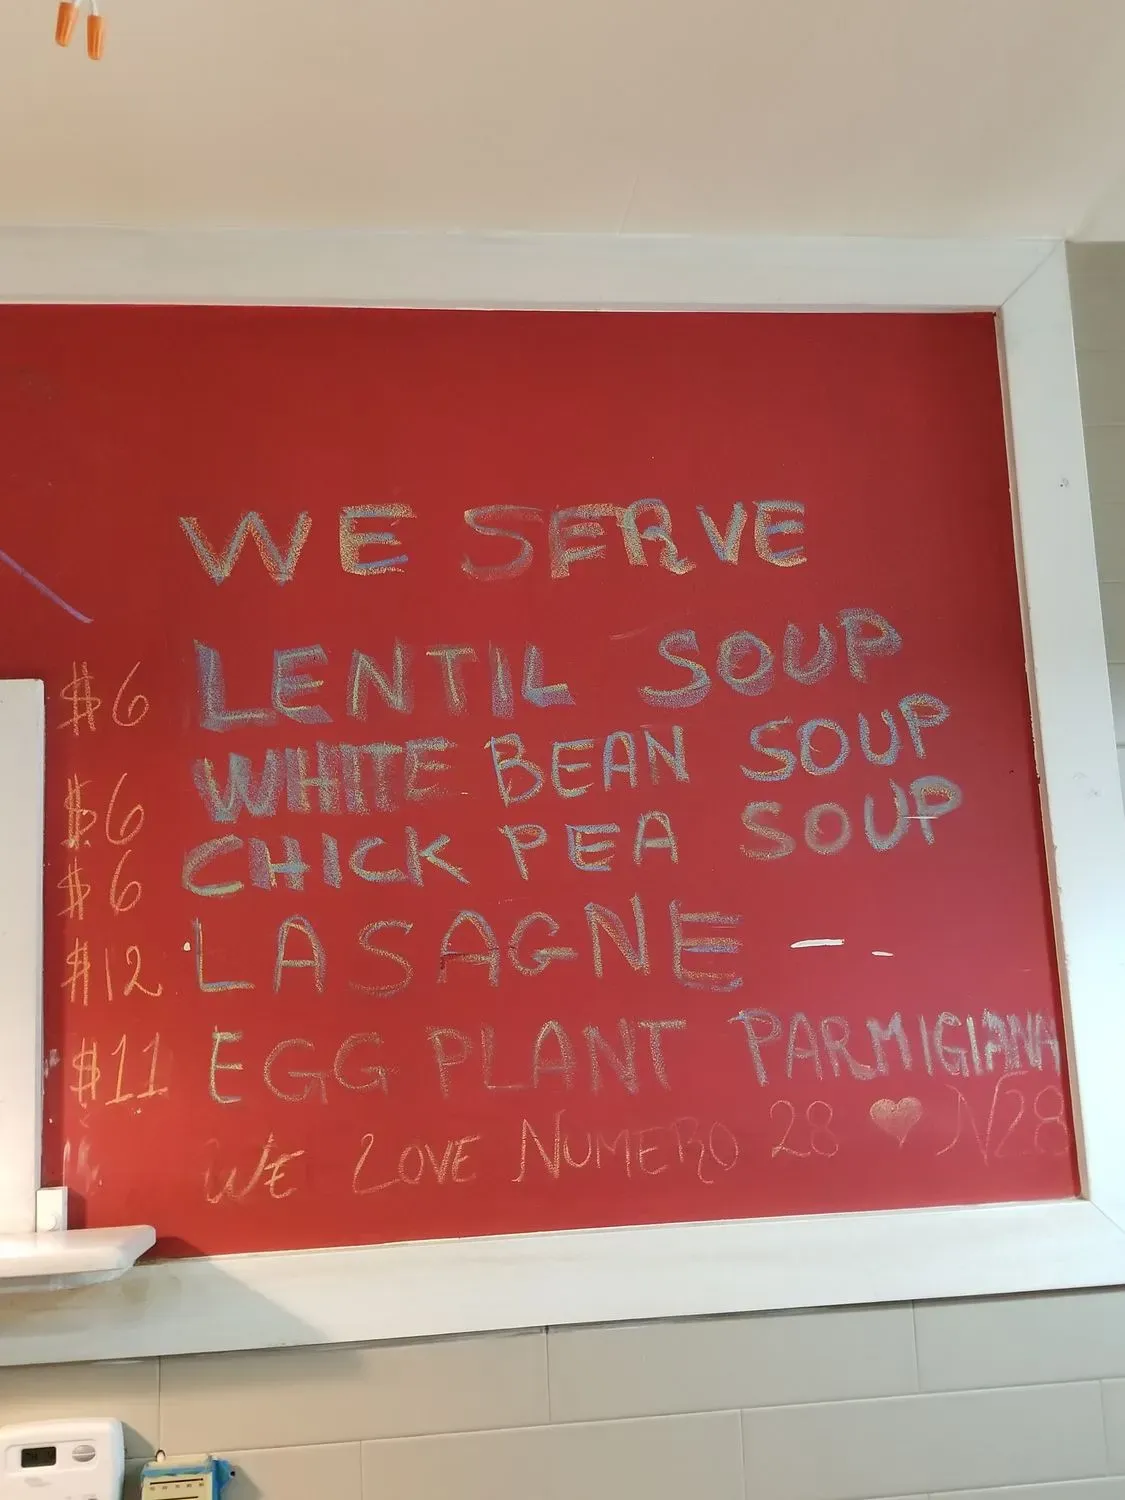 WE SERVE
$6 LENTIL SOUP
$6 WHITE BEAN SOUP
$6 CHICK PEA SOUP
$12 LASAGNE
$11 EGG PLANT PARMIGIANA
WE LOVE NUMERO 28 ♥ N28